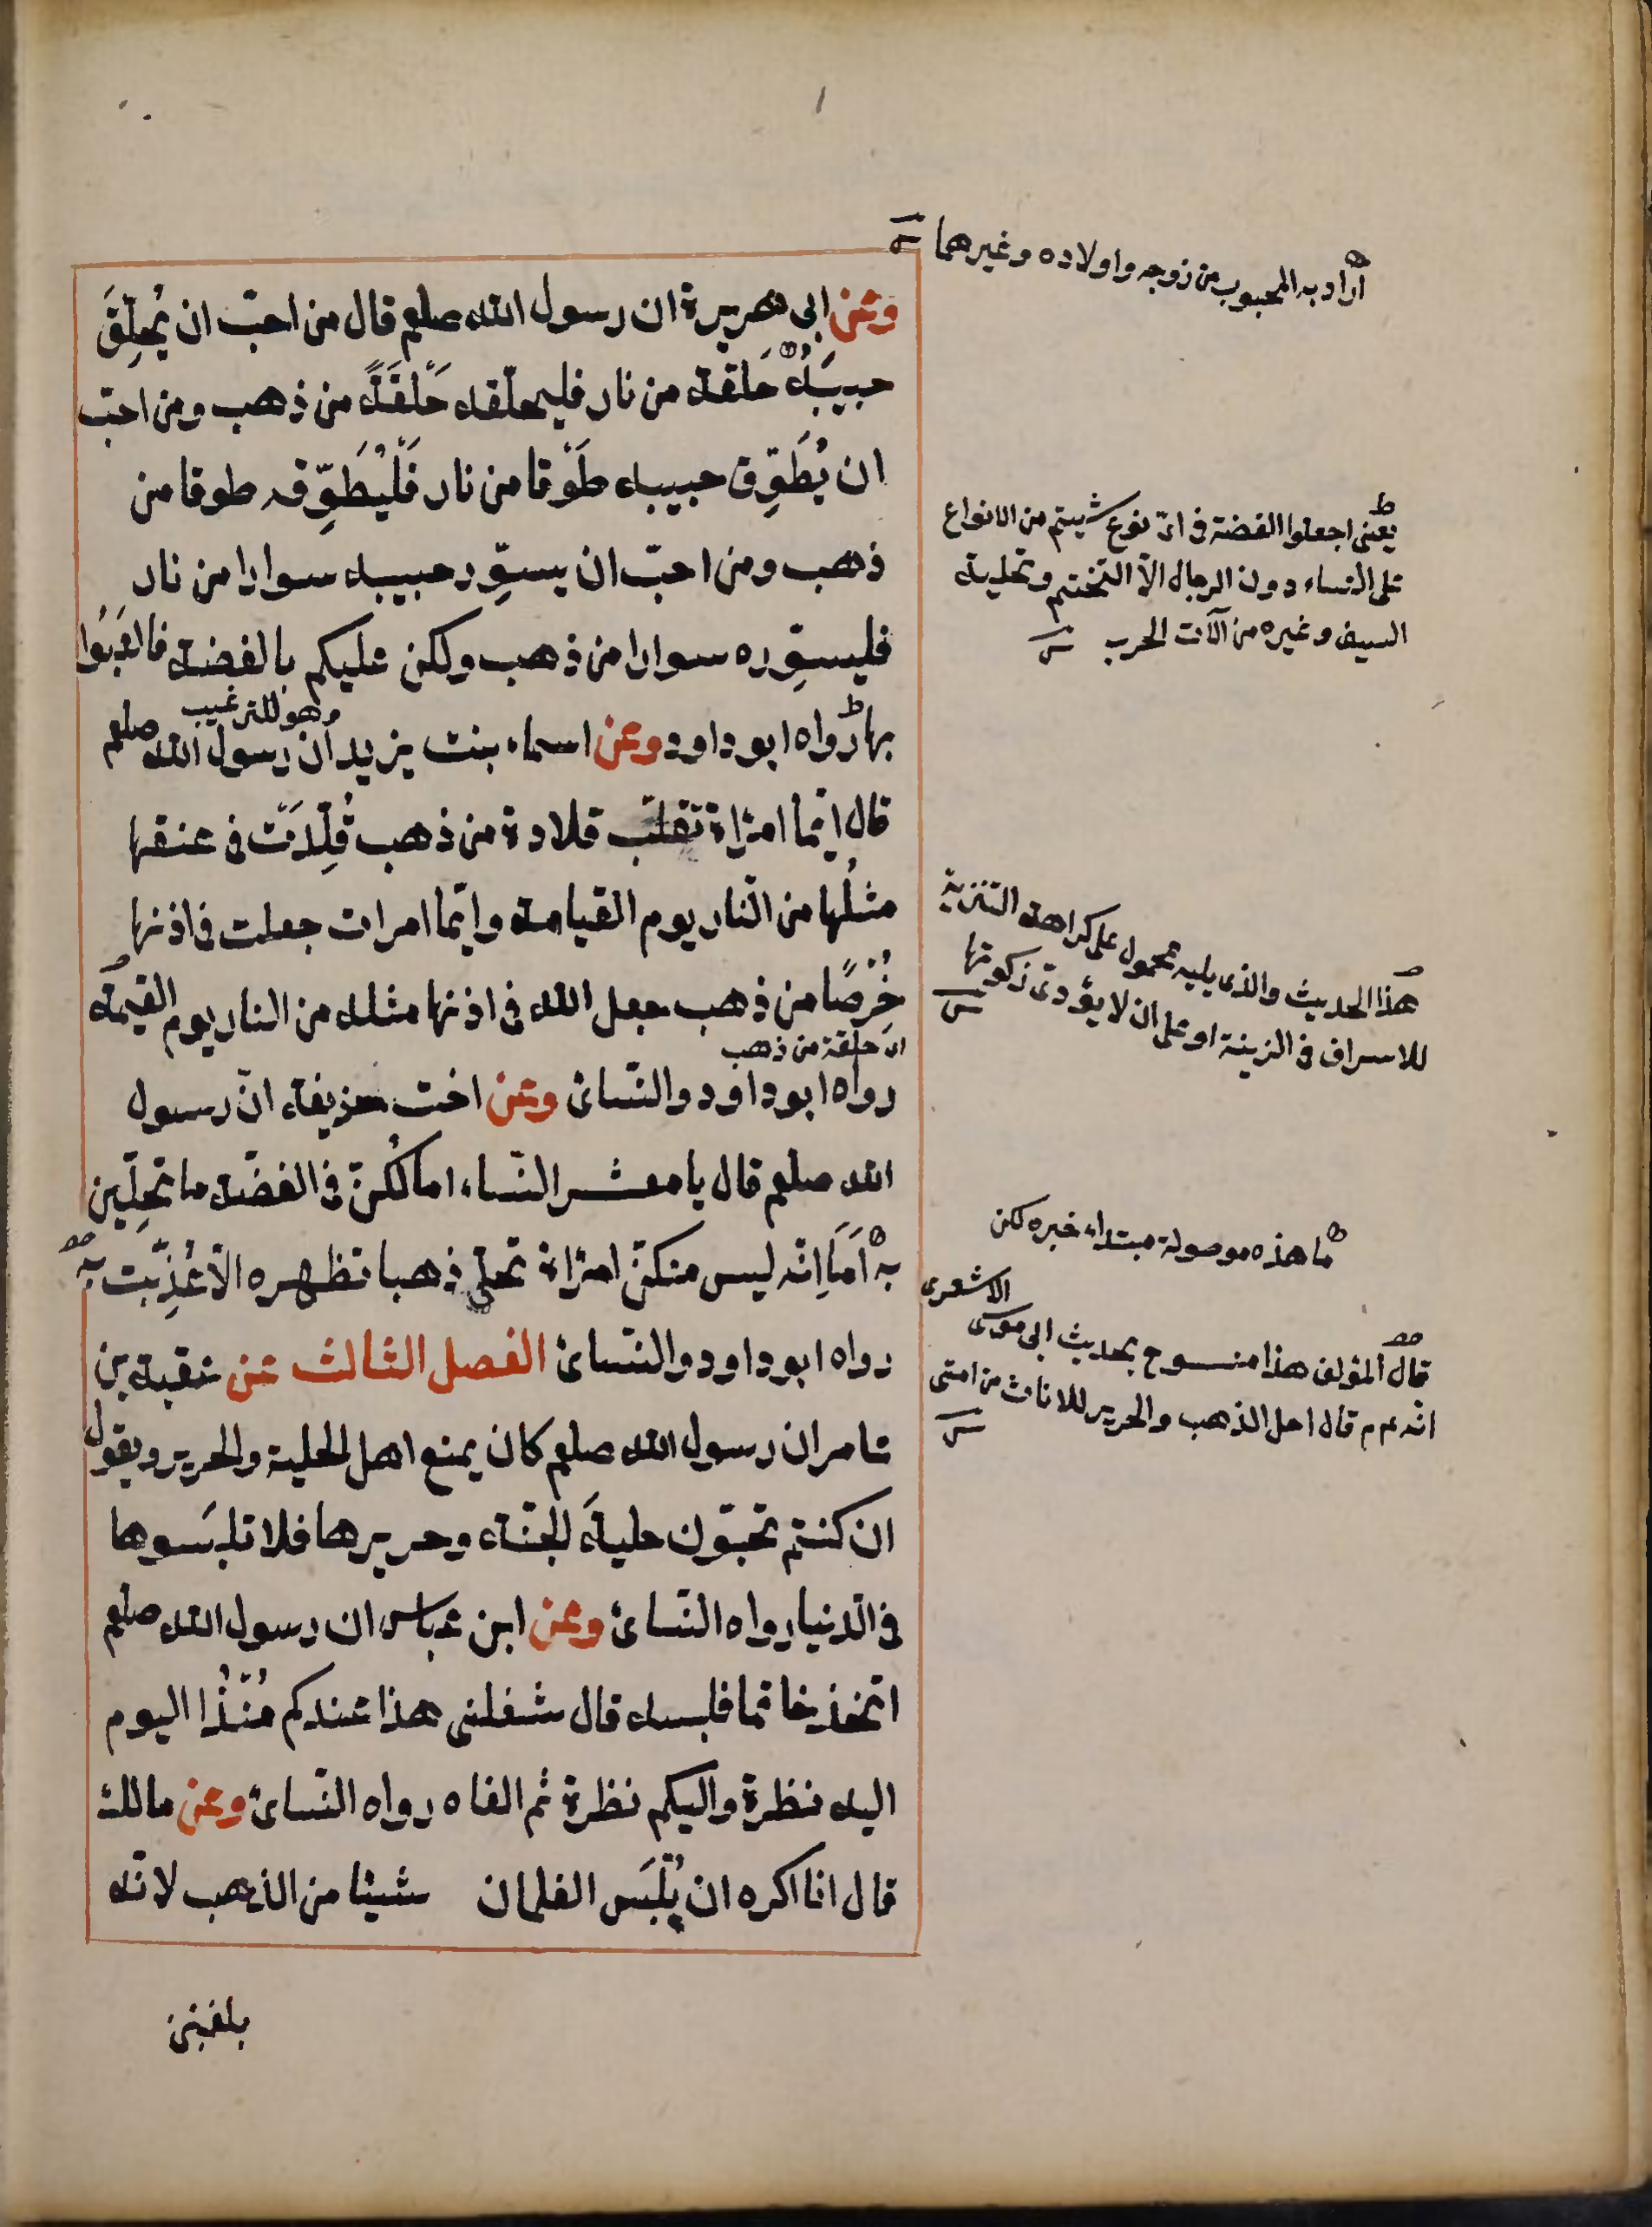 وعن ابى هريرة ان رسول الله صلعم قال من احبّ ان يُحلِّقَ
حبيبَهُ حَلقة من نار فليحلقه حَلقَةً من ذهب ومن احبّ
ان يُطَوِّق حبيبه طَوْقا من نار فَلْيُطَوِّقه طوقا من
ذهب ومن احبّ ان يسوِّر حبيبه سوارا من نار
فليسوِّره سوارا من ذهب ولكن عليكم بالفضة فالعَبُوا
وهو للترغيب
بها رواه ابو داود وعن اسماء بنت يزيد ان رسول الله صلعم
قال ايّما امرأة تقلّب قلادة من ذهب قُلِّدَت فى عنقها
مثلُها من النّار يوم القيامة وايّما امرات جعلت فى اذنها
خُرْصًا من ذهب جعل الله فى اذنها مثله من النار يوم القيمة
اى حلقة من ذهب
رواه ابو داود والنّسائ وعن اخت حزيفة انّ رسول
الله صلعم قال يا معشر النّساء اما لكُنّ فى الفضّة ما تحلِّين
به اَمَا اِنّه ليس منكنّ امرأة تحلّى ذهبا تظهره الّا عُذِّبت به
رواه ابو داود والنّسائ الفصل الثالث عن عقبة بن
عامر ان رسول الله صلعم كان يمنع اهل الحلية والحرير ويقول
ان كنتم تحبّون حليةَ الجنّة وحريرها فلا تلبَسوها
فى الدّنيا رواه النّسائ وعن ابن عباس ان رسول الله صلعم
اتخذ خاتما فلبسه قال شغلنى هذا عندكم مُنْذُ اليوم
اليه نظرة واليكم نظرة ثم القاه رواه النّسائ وعن مالك
قال انا اكره ان يُلْبَس الغلمان شيئا من الذهب لانّه
بلغنى
اراد به المحبوب من زوجه واولاده وغيرهما
يعنى اجعلوا الفضة فى اىّ نوع شيتم من الانواع
على النساء دون الرجال الّا التختم وتحلية
السيف وغيره من آلات الحرب
هذا الحديث والذى يليه محمول على كراهة التنزيه
للاسراف فى الزينة او على ان لا يؤدى زكوتها
ما هذه موصولة مبتداء خبره لكن
قال المؤلف هذا منسوح بحديث ابى موسى الاشعرى
انّه عم م قال احل الذهب والحرير للاناث من امتى